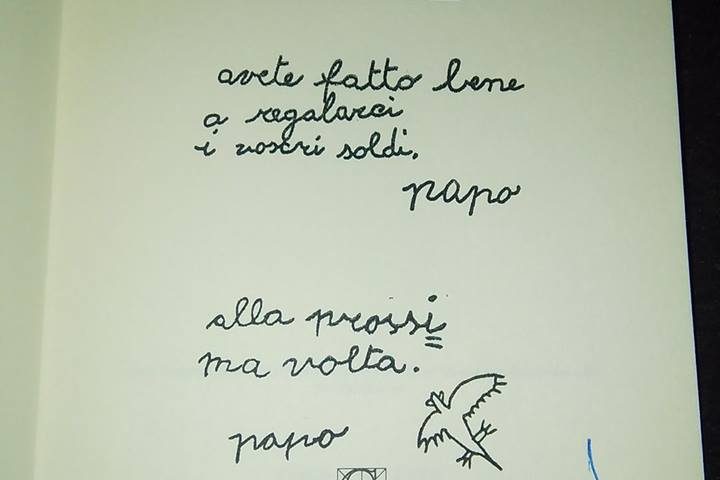 avete fatto bene
a regalarci
i vostri soldi.
papo
alla prossi=
ma volta.
papo